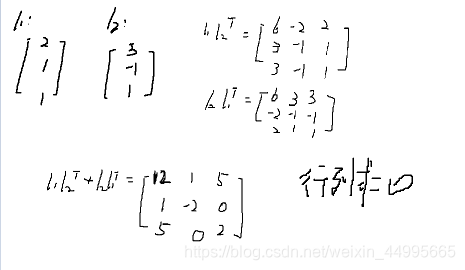 l₁: l₂:
[2 1 1] [3 -1 1]
l₁l₂ᵀ = [6 -2 2
3 -1 1
3 -1 1]
l₂l₁ᵀ = [6 3 3
-2 -1 -1
2 1 1]
l₁l₂ᵀ + l₂l₁ᵀ = [12 1 5
1 -2 0
5 0 2]
行列式=0
https://blog.csdn.net/weixin_44995665